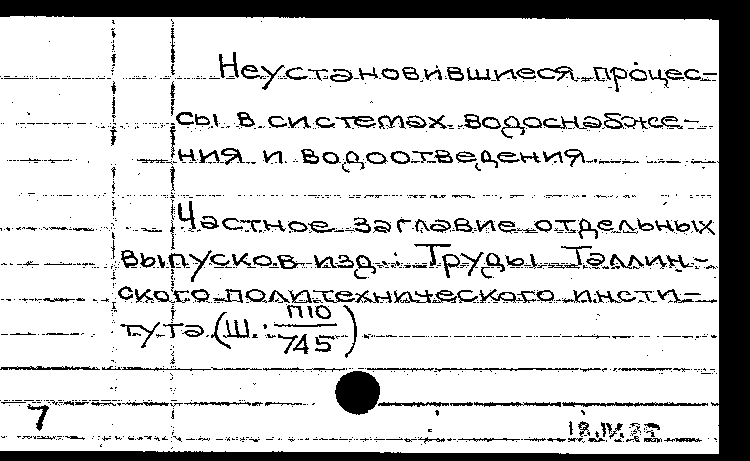 Неустановившиеся процес-
сы в системах водоснабже-
ния и водоотведения.
Частное заглавие отдельных
выпусков изд.: Труды Таллин-
ского политехнического инсти-
тута (Ш.: П10/745).
7